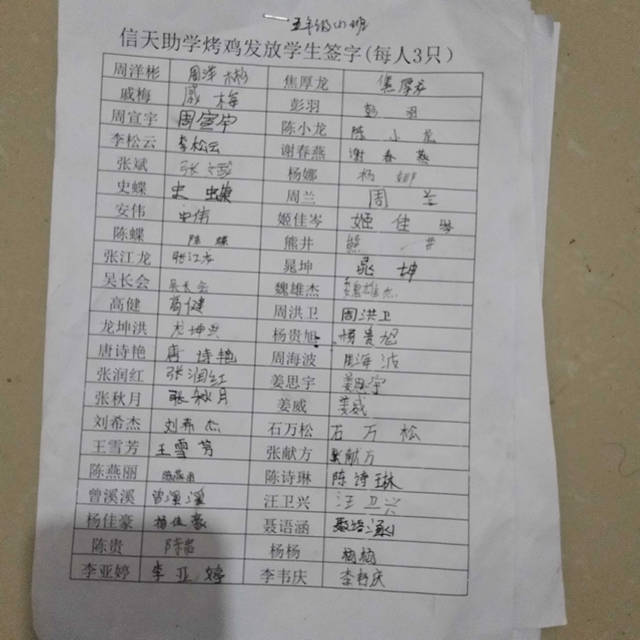 五年级四班
信天助学烤鸡发放学生签字(每人3只)
周洋彬 周洋彬 焦厚龙 焦厚龙
戚梅 戚梅 彭羽 彭羽
周宣宇 周宣宇 陈小龙 陈小龙
李松云 李松云 谢春燕 谢春燕
张斌 张斌 杨娜 杨娜
史蝶 史蝶 周兰 周兰
安伟 安伟 姬佳岑 姬佳岑
陈蝶 陈蝶 熊井 熊井
张江龙 张江龙 晁坤 晁坤
吴长会 吴长会 魏雄杰 魏雄杰
高健 高健 周洪卫 周洪卫
龙坤洪 龙坤洪 杨贵旭 杨贵旭
唐诗艳 唐诗艳 周海波 周海波
张润红 张润红 姜思宇 姜思宇
张秋月 张秋月 姜威 姜威
刘希杰 刘希杰 石万松 石万松
王雪芳 王雪芳 张献方 张献方
陈燕丽 陈诗琳 陈诗琳
曾溪溪 曾溪溪 汪卫兴 汪卫兴
杨佳豪 杨佳豪 聂语涵 聂语涵
陈贵 陈贵 杨杨 杨杨
李亚婷 李亚婷 李韦庆 李韦庆